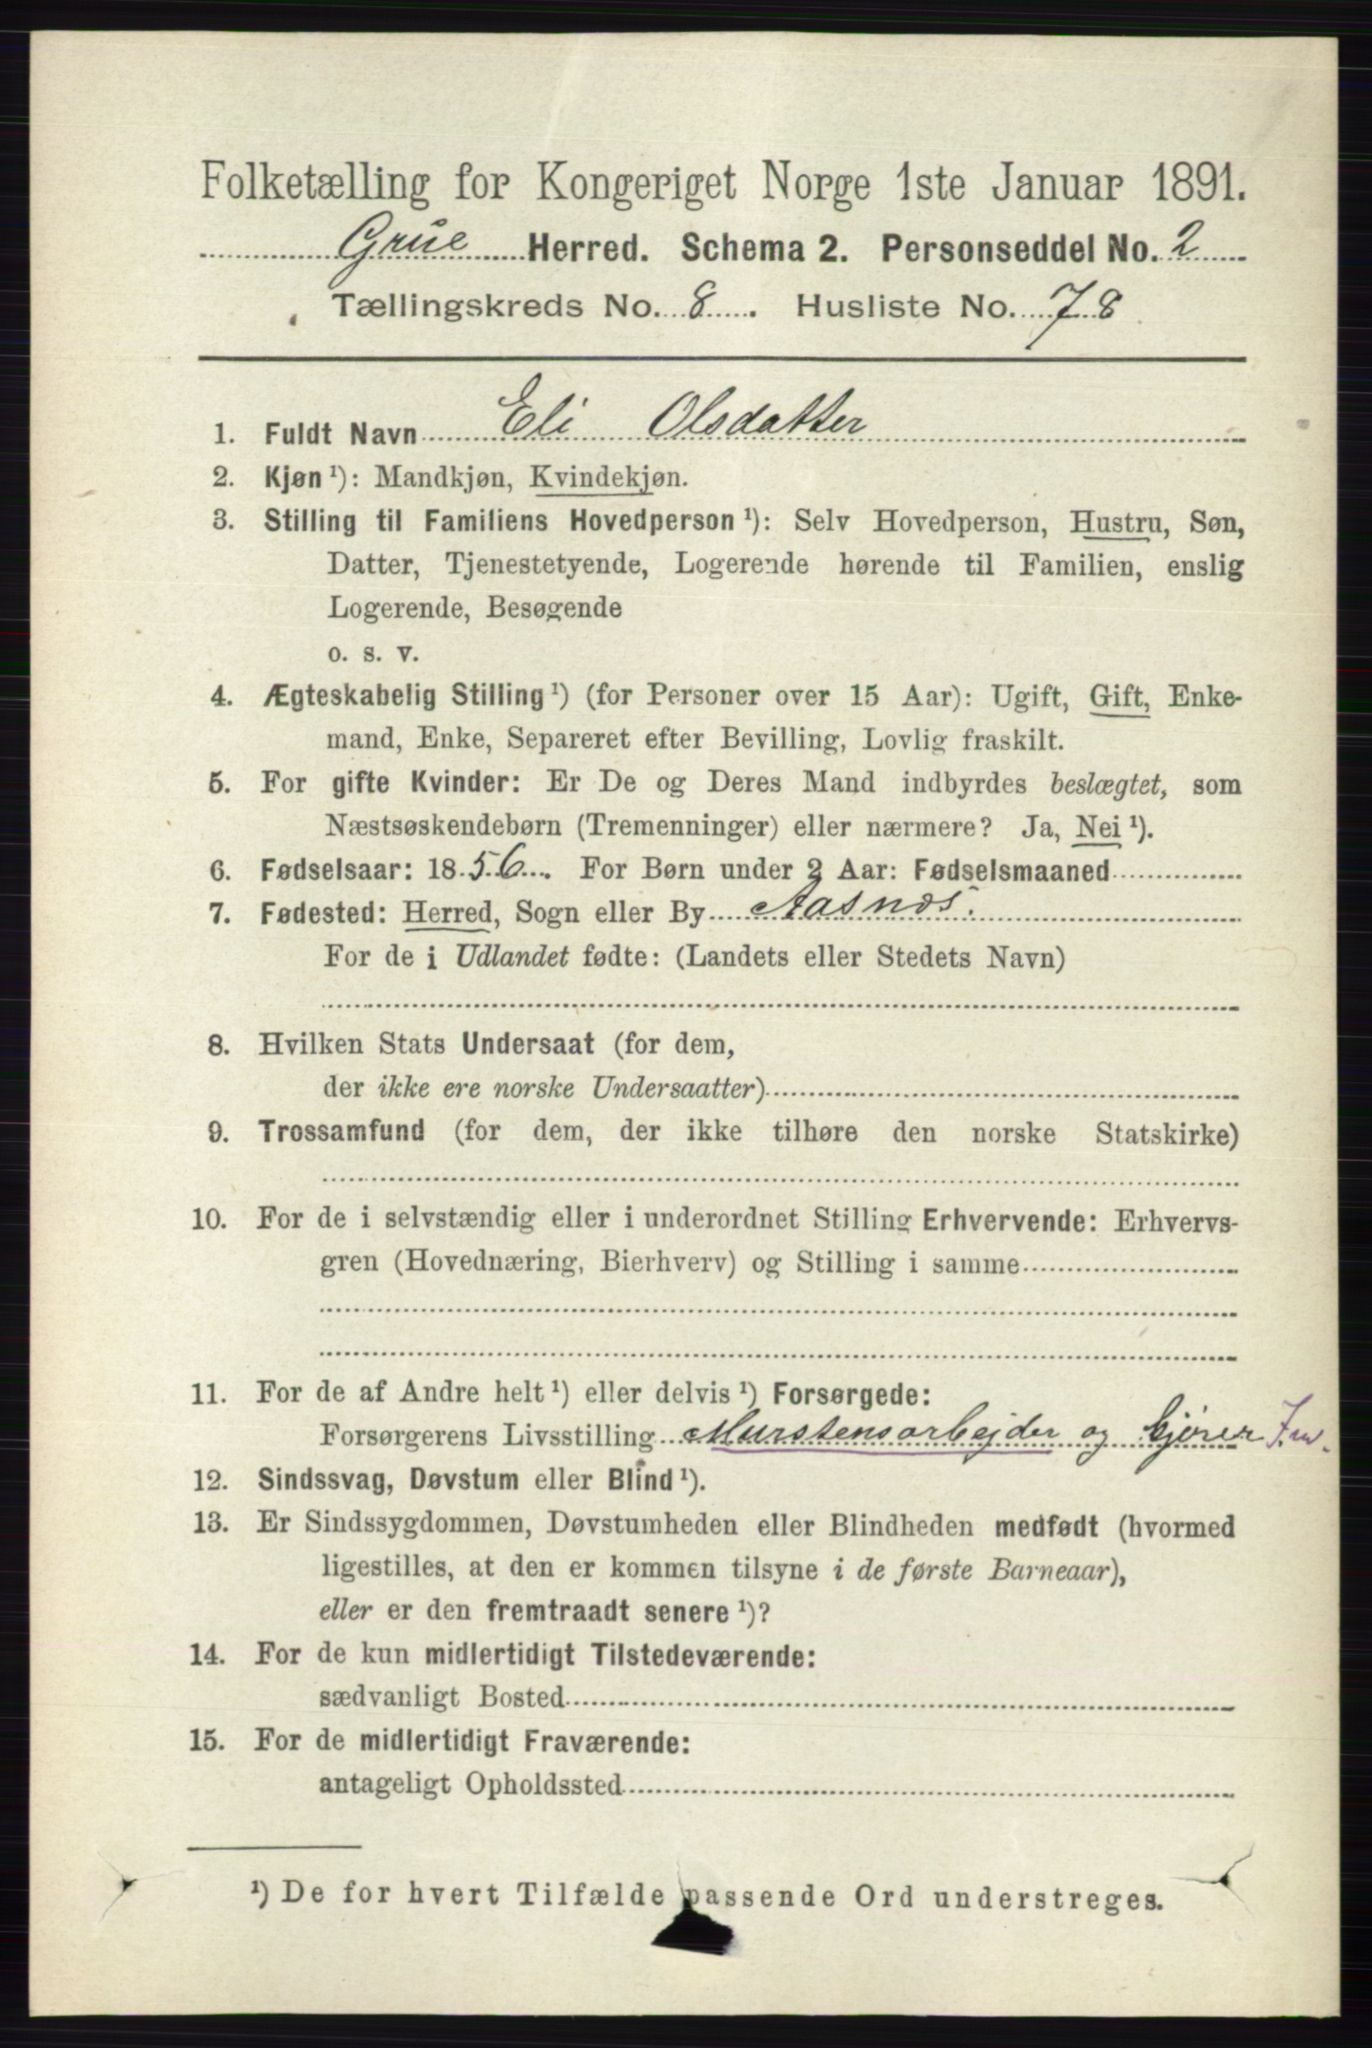 Folketælling for Kongeriget Norge 1ste Januar 1891.
Grue Herred. Schema 2. Personseddel No. 2
Tællingskreds No. 8. Husliste No. 78
1. Fuldt Navn Eli Olsdatter
2. Kjøn ¹): Mandkjøn, Kvindekjøn.
3. Stilling til Familiens Hovedperson ¹): Selv Hovedperson, Hustru, Søn,
Datter, Tjenestetyende, Logerende hørende til Familien, enslig
Logerende, Besøgende
o. s. v.
4. Ægteskabelig Stilling ¹) (for Personer over 15 Aar): Ugift, Gift, Enke-
mand, Enke, Separeret efter Bevilling, Lovlig fraskilt.
5. For gifte Kvinder: Er De og Deres Mand indbyrdes beslægtet, som
Næstsøskendebørn (Tremenninger) eller nærmere? Ja, Nei ¹).
6. Fødselsaar: 1856. For Børn under 2 Aar: Fødselsmaaned
7. Fødested: Herred, Sogn eller By Aasnes.
For de i Udlandet fødte: (Landets eller Stedets Navn)
8. Hvilken Stats Undersaat (for dem,
der ikke ere norske Undersaatter)
9. Trossamfund (for dem, der ikke tilhøre den norske Statskirke)
10. For de i selvstændig eller i underordnet Stilling Erhvervende: Erhvervs-
gren (Hovednæring, Bierhverv) og Stilling i samme
11. For de af Andre helt ¹) eller delvis ¹) Forsørgede:
Forsørgerens Livsstilling Murstensarbejder og
12. Sindssvag, Døvstum eller Blind ¹).
13. Er Sindssygdommen, Døvstumheden eller Blindheden medfødt (hvormed
ligestilles, at den er kommen tilsyne i de første Barneaar),
eller er den fremtraadt senere ¹)?
14. For de kun midlertidigt Tilstedeværende:
sædvanligt Bosted
15. For de midlertidigt Fraværende:
antageligt Opholdssted
¹) De for hvert Tilfælde passende Ord understreges.